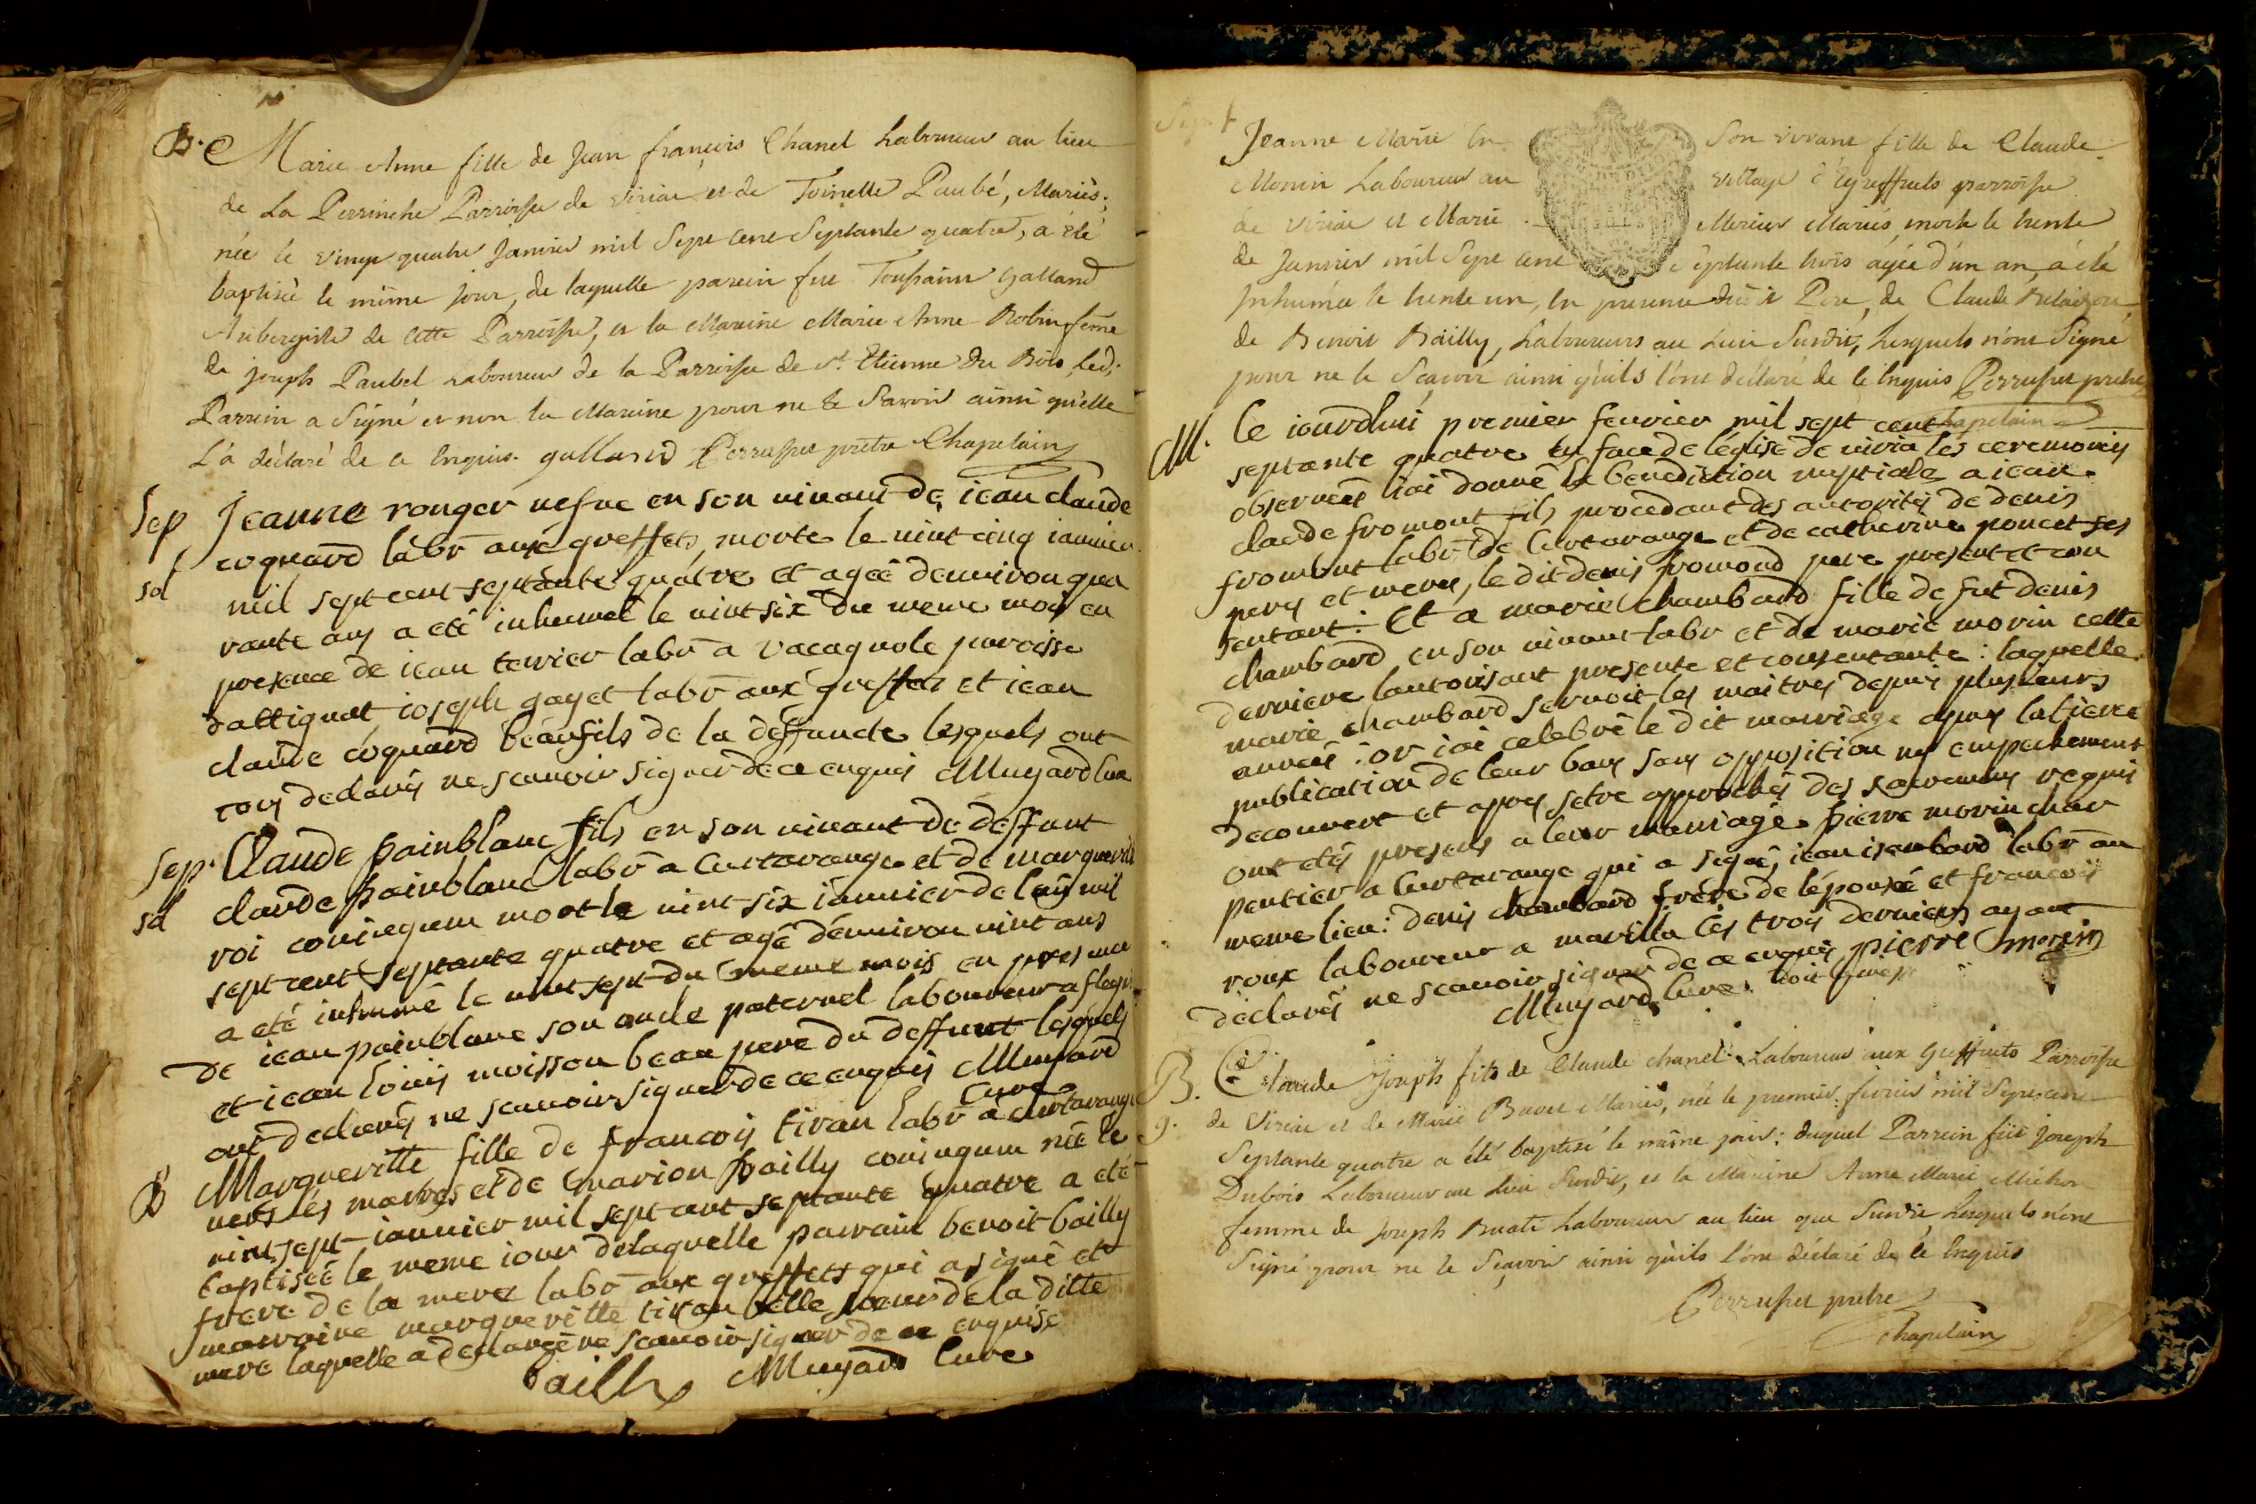 B. Marie Anne fille de Jean françois Chanel Laboureur au lieu
de La Perrinche Parroisse de Viriat et de Toinette Paubé, Mariés;
née le vingt quatre Janvier mil Sept cent Septante quatre, a été
baptisée le même jour, de laquelle parein fut Toussaint Galland
Aubergiste de cette Parroisse, et la Mareine Marie Anne Robin feme
de joseph Paubel Laboureur de la Parroisse de St. Etienne du Bois, Led.
Parrein a Signé et non la Mareine pour ne le Savoir ainsi qu'elle
L'a déclaré de ce Enquis. galland Perruset prêtre Chapelain
Sep Jeanne ronger vefve en son vivant de jean claude
sd coquard labr aux greffets, morte le vint cinq ianvier
mil sept cent septante quatre et agée denviron qua
rante ans a eté inhumeé le vint six du meme mois en
presence de iean terrier labr a vacagnole paroisse
dattignat, ioseph gayet labr aux greffets et iean
claude coquard beaufils de la deffuncte lesquels ont
tous declarés ne scauoir signer de ce enquis Muyard Cure
Sep. Claude painblanc fils en son vivant de deffunt
sd claude painblanc labr a Curtarange et de marguerite
roi coniugum mort le vint six iannier de lan mil
sept cent septante quatre et agé denviron vint ans
a eté inhumé le vint sept du meme mois en presence
de iean painblanc son oncle paternel laboureur a
et iean louis moisson beau pere du deffunt lesquels
ont declarés ne scauoir signer de ce enquis Muyard
Cure
B Margueritte fille de francois tiran labr a Curtarange
vers les maitres et de marion bailly coniugum née le
vint sept iannier mil sept cent septante quatre a eté
baptisée le meme iour de laquelle parrain benoit bailly
frere de la mere labr aux greffets qui a signé et
marraine marguerite tiran belle soeur de la ditte
mere laquelle a declarée ne scauoir signer de ce enquise
bailly Muyard Cure
Sep
Jeanne Marie En Son vivant fille de Claude
Monin Laboureur au village parroisse
de Viriat et Marie Mariés, morte le trente
de Janvier mil Sept cent Septante trois agée d'un an, a été
Inhumée le trente un, En presence dudit Pere, de Claude
de Benoit Bailly, Laboureurs au Lieu Surdit, Lesquels n'ont Signé
pour ne le Sçavoir ainsi qu'ils l'ont déclaré de ce Enquis Perruset prêtre
chapelain
M. Ce iourdhui premier feurier mil sept cent
septante quatre en face de léglise de viria les ceremonies
obseruées iai donné la benediction nuptiale a iean
claude fromont fils procedant des autorités de denis
fromont labr de Curtarange et de catherine poncet ses
pere et mere, le dit denis fromond pere present et con
sentant: Et a marie chambard fille de fut denis
chambard en son vivant labr et de marie morin cette
derniere lautorisant presente et consentante: laquelle
marie chambard servoit les maitres depuis plusieurs
années: or iai celebré le dit mariage apres la tierce
publication de leur bans sans opposition ni empechement
decouvert et apres setre approchés des sacremens requis
ont etés presens a leur mariage pierre morin char
pentier a Curtarange qui a signé, iean isambard labr au
meme lieu: denis chambard frere de lépousée et francois
roux laboureur a marilla les trois derniers ayant
declarés ne scauoir signer de ce enquis pierre morin
Muyard Cure
B. Claude Joseph fils de Claude chanel Laboureur aux Greffets Parroisse
g. de Viriat et de Marie Buvet Mariés, né le premier février mil Sept cent
Septante quatre a été baptisé le même jour: duquel Parrein fut Joseph
Dubois Laboureur au Lieu Surdit, et la Mareine Anne Marie Michon
femme de Joseph Buatte Laboureur au lieu que Surdit Lesquels n'ont
Signé pour ne le Sçavoir ainsi qu'ils l'ont déclaré de ce Enquis
Perruset prêtre
Chapelain